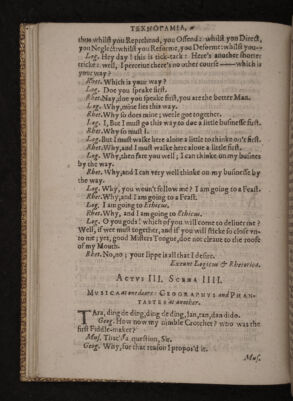 ΤΕΧΝΟΓΑΜΙΑ,
thus whilst you Reprehend, you Offend: whilst you Direct,
you Neglect: whilst you Reforme, you Deforme: whilst you--
Log. Hey day! this is tick-tack: Here's another shorter
tricke: well, I perceiue there's no other course ——which is
your way?
Rhet. Which is your way?
Log. Doe you speake first.
Rhet. Nay, doe you speake first, you are the better Man.
Log. Why, mine lies this way.
Rhet. Why so does mine; we'le goe together.
Log. I, But I must go this way to doe a little businesse first.
Rhet. Why so must I.
Log. But I must walke here alone a little to thinke on't first.
Rhet. Why, and I must walke here alone a little first.
Log. Why, then fare you well; I can thinke on my busines
by the way.
Rhet. Why, and I can very well thinke on my businesse by
the way.
Log. Why, you woun't follow me? I am going to a Feast.
Rhet. Why, and I am going to a Feast.
Log. I am going to Ethicus.
Rhet. Why, and I am going to Ethicus.
Log. O you gods! which of you will come to deliuer me?
Well, if wee must together, and if you will sticke so close vn-
to me; yet, good Misters Tongue, doe not cleaue to the roofe
of my Mouth.
Rhet. No, no; your lippe is all that I desire.
Exeunt Logicus & Rhetorica.
ACTVS III. SCENA IIII.
MVSICA at one doore: GEOGRAPHVS and PHAN-
TASTES at another.
TAra, ding de ding, ding de ding, tan, ran, dan dido.
Geog. How now my nimble Crotchet? who was the
first Fiddle-maker?
Mus. That's a question, Sir.
Geog. Why, for that reason I propos'd it.
Mus.